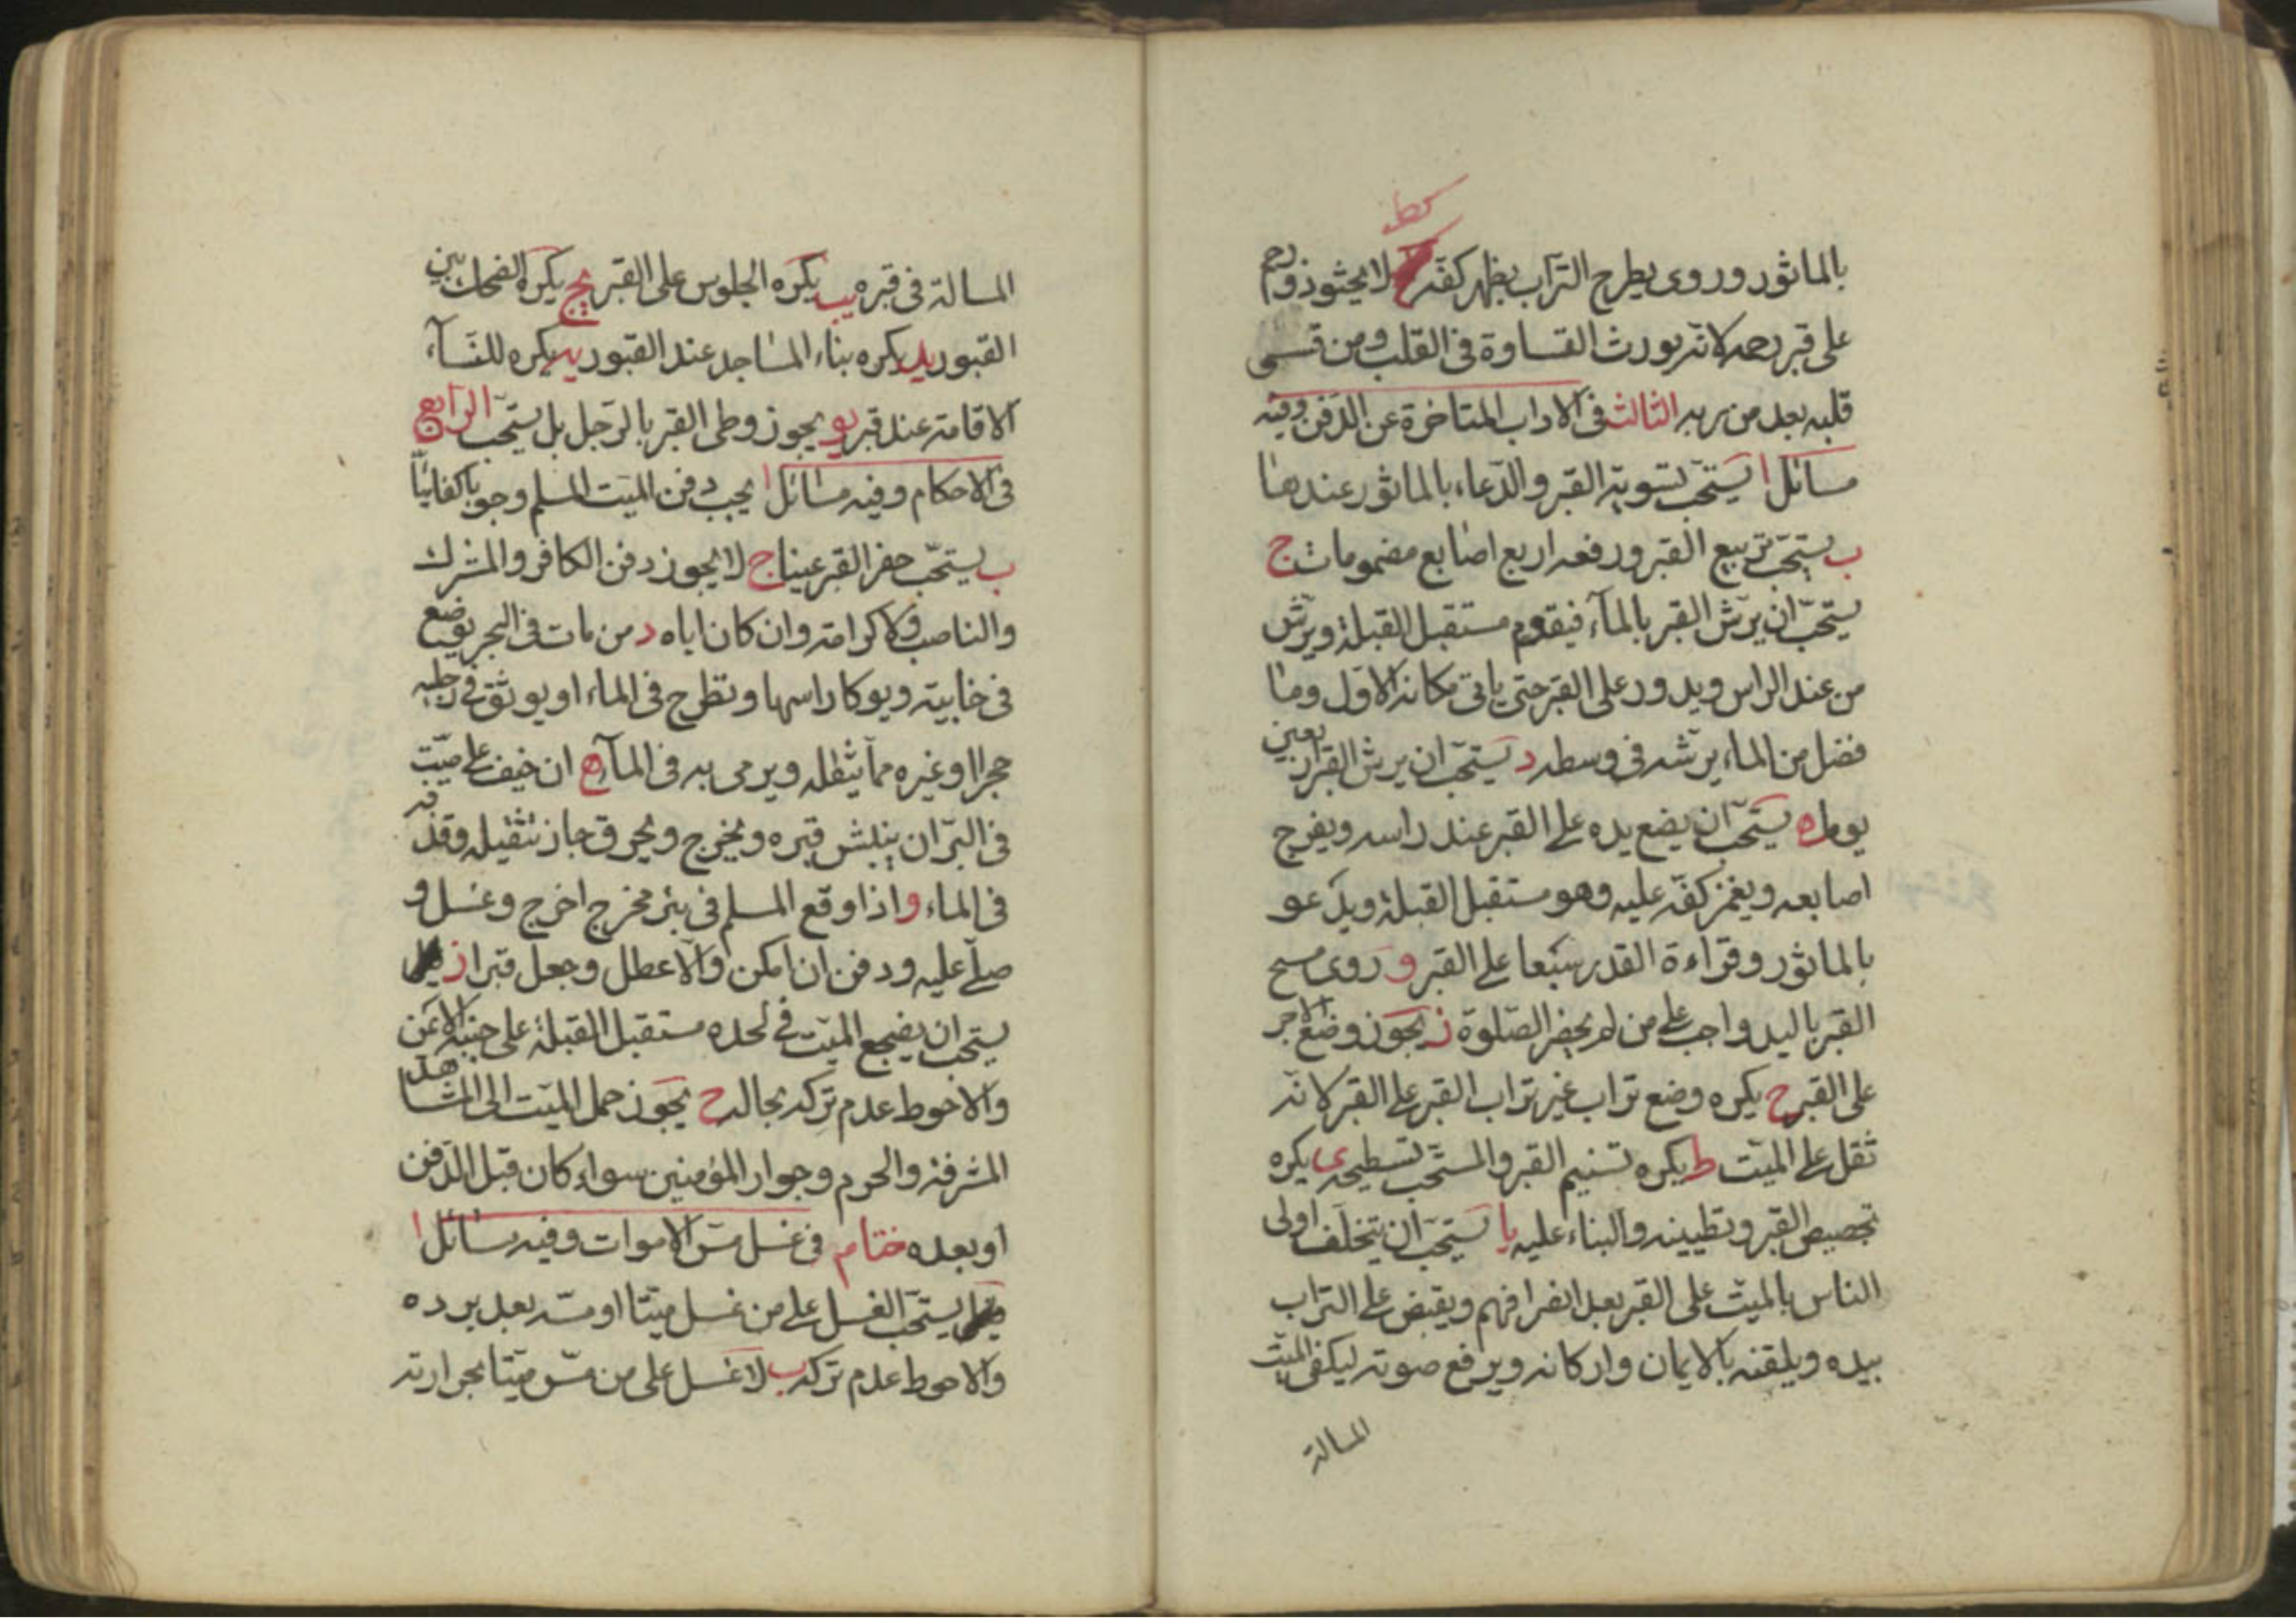 كط
بالماثور وروى يطرح التراب بظهر كفه لا يحثوذورحم
على قبر رحمه لانه يورث القساوة فى القلب ومن قسى
قلبه بعد من ربه الثالث فى الاداب المتاخرة عن الدفن وفيه
مسائل ا يستحب تسوية القبر والدعاء بالماثور عندها
ب يستحب تربيع القبر ورفعه اربع اصابع مضمومات ج
يستحب ان يرش القبر بالمآء فيقوم مستقبل القبلة ويرش
من عند الراس ويدور على القبر حتى ياتى مكانه الاول وما
فضل من الماء يرشه فى وسطه د يستحب ان يرش القبر اربعين
يوما ه يستحب ان يضع يده على القبر عند راسه ويفرج
اصابعه ويغمز كفه عليه وهو مستقبل القبلة ويدعو
بالماثور وقراءة القدر سبعا على القبر و روى مسح
القبر باليد واجب على من لم يحضر الصلوة ز يجوز وضع الاجر
على القبر ح يكره وضع تراب غير تراب القبر على القبر لانه
ثقل على الميت ط يكره تسنيم القبر والمستحب تسطيحه ى يكره
تجصيص القبر وتطيينه والبناء عليه يا يستحب ان يتخلف اولى
الناس بالميت على القبر بعد انصرافهم ويقبض على التراب
بيده ويلقنه بالايمان واركانه ويرفع صوته ليكفى الميت
المسالة
المسالة فى قبره يب يكره الجلوس على القبر يج يكره الضحك بين
القبور يد يكره بناء المساجد عند القبور يه يكره للنسآء
الاقامة عند قبر يو يجوز وطى القبر بالرجل بل يستحب الرابع
فى الاحكام وفيه مسائل ا يجب دفن الميت المسلم وجوبا كفائيا
ب يستحب حفر القبر عينا ج لا يجوز دفن الكافر والمشرك
والناصب ولا كرامة وان كان اباه د من مات فى البحر يوضع
فى خابية ويوكا راسها وتطرح فى الماء او يوثق فى رجليه
حجرا او غيره مما يثقله ويرمى به فى المآء ه ان خيف على ميت
فى البر ان ينبش قبره ويخرج ويحرق جاز تثقيله وقذفه
فى الماء و اذا وقع المسلم فى بئر مخرج اخرج وغسل و
صلى عليه ودفن ان امكن والا عطل وجعل قبرا ز
يستحب ان يضجع الميت فى لحده مستقبل القبلة على جنبه الايمن
والاحوط عدم تركه بحال ح يجوز حمل الميت الى المشاهد
المشرفة والحرم وجوار المؤمنين سواء كان قبل الدفن
او بعده ختام فى غسل مس الاموات وفيه مسائل ا
يستحب الغسل على من غسل ميتا او مسه بعد برده
والاحوط عدم تركه ب لا غسل على من مس ميتا بحرارته